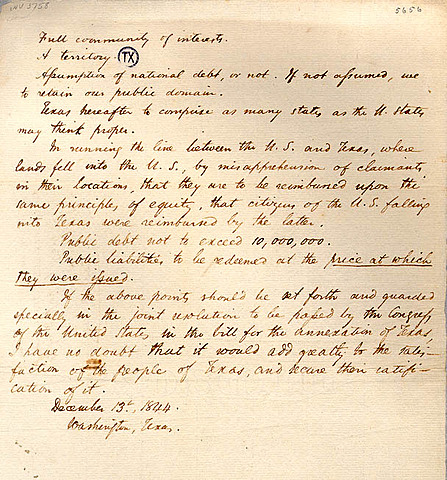 INV 5756
5656
Full community of interests.
A territory. TX
Assumption of national debt, or not. If not assumed, we
to retain our public domain.
Texas hereafter to comprise as many states as the U. States
may think proper.
In running the line between the U.S. and Texas, where
lands fell into the U.S., by misapprehension of claimants,
in their locations, that they are to be reimbursed upon the
same principles of equity, that citizens of the U.S. falling
into Texas were reimbursed by the latter.
Public debt not to exceed 10,000,000.
Public liabilities to be redeemed at the price at which
they were issued.
If the above points should be set forth and guarded
specially in the joint resolution to be passed by the Congress
of the United States, in the bill for the annexation of Texas,
I have no doubt that it would add greatly to the satis-
faction of the people of Texas, and secure their ratifi-
cation of it.
December 13th, 1844.
Washington, Texas.